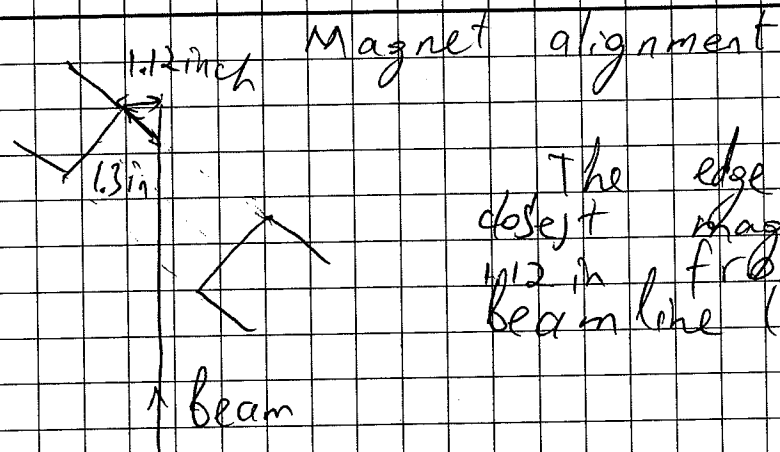 Magnet alignment
1.12 inch
The edge
1.3 in
closest mag
1.12 in fro
beam line (
beam